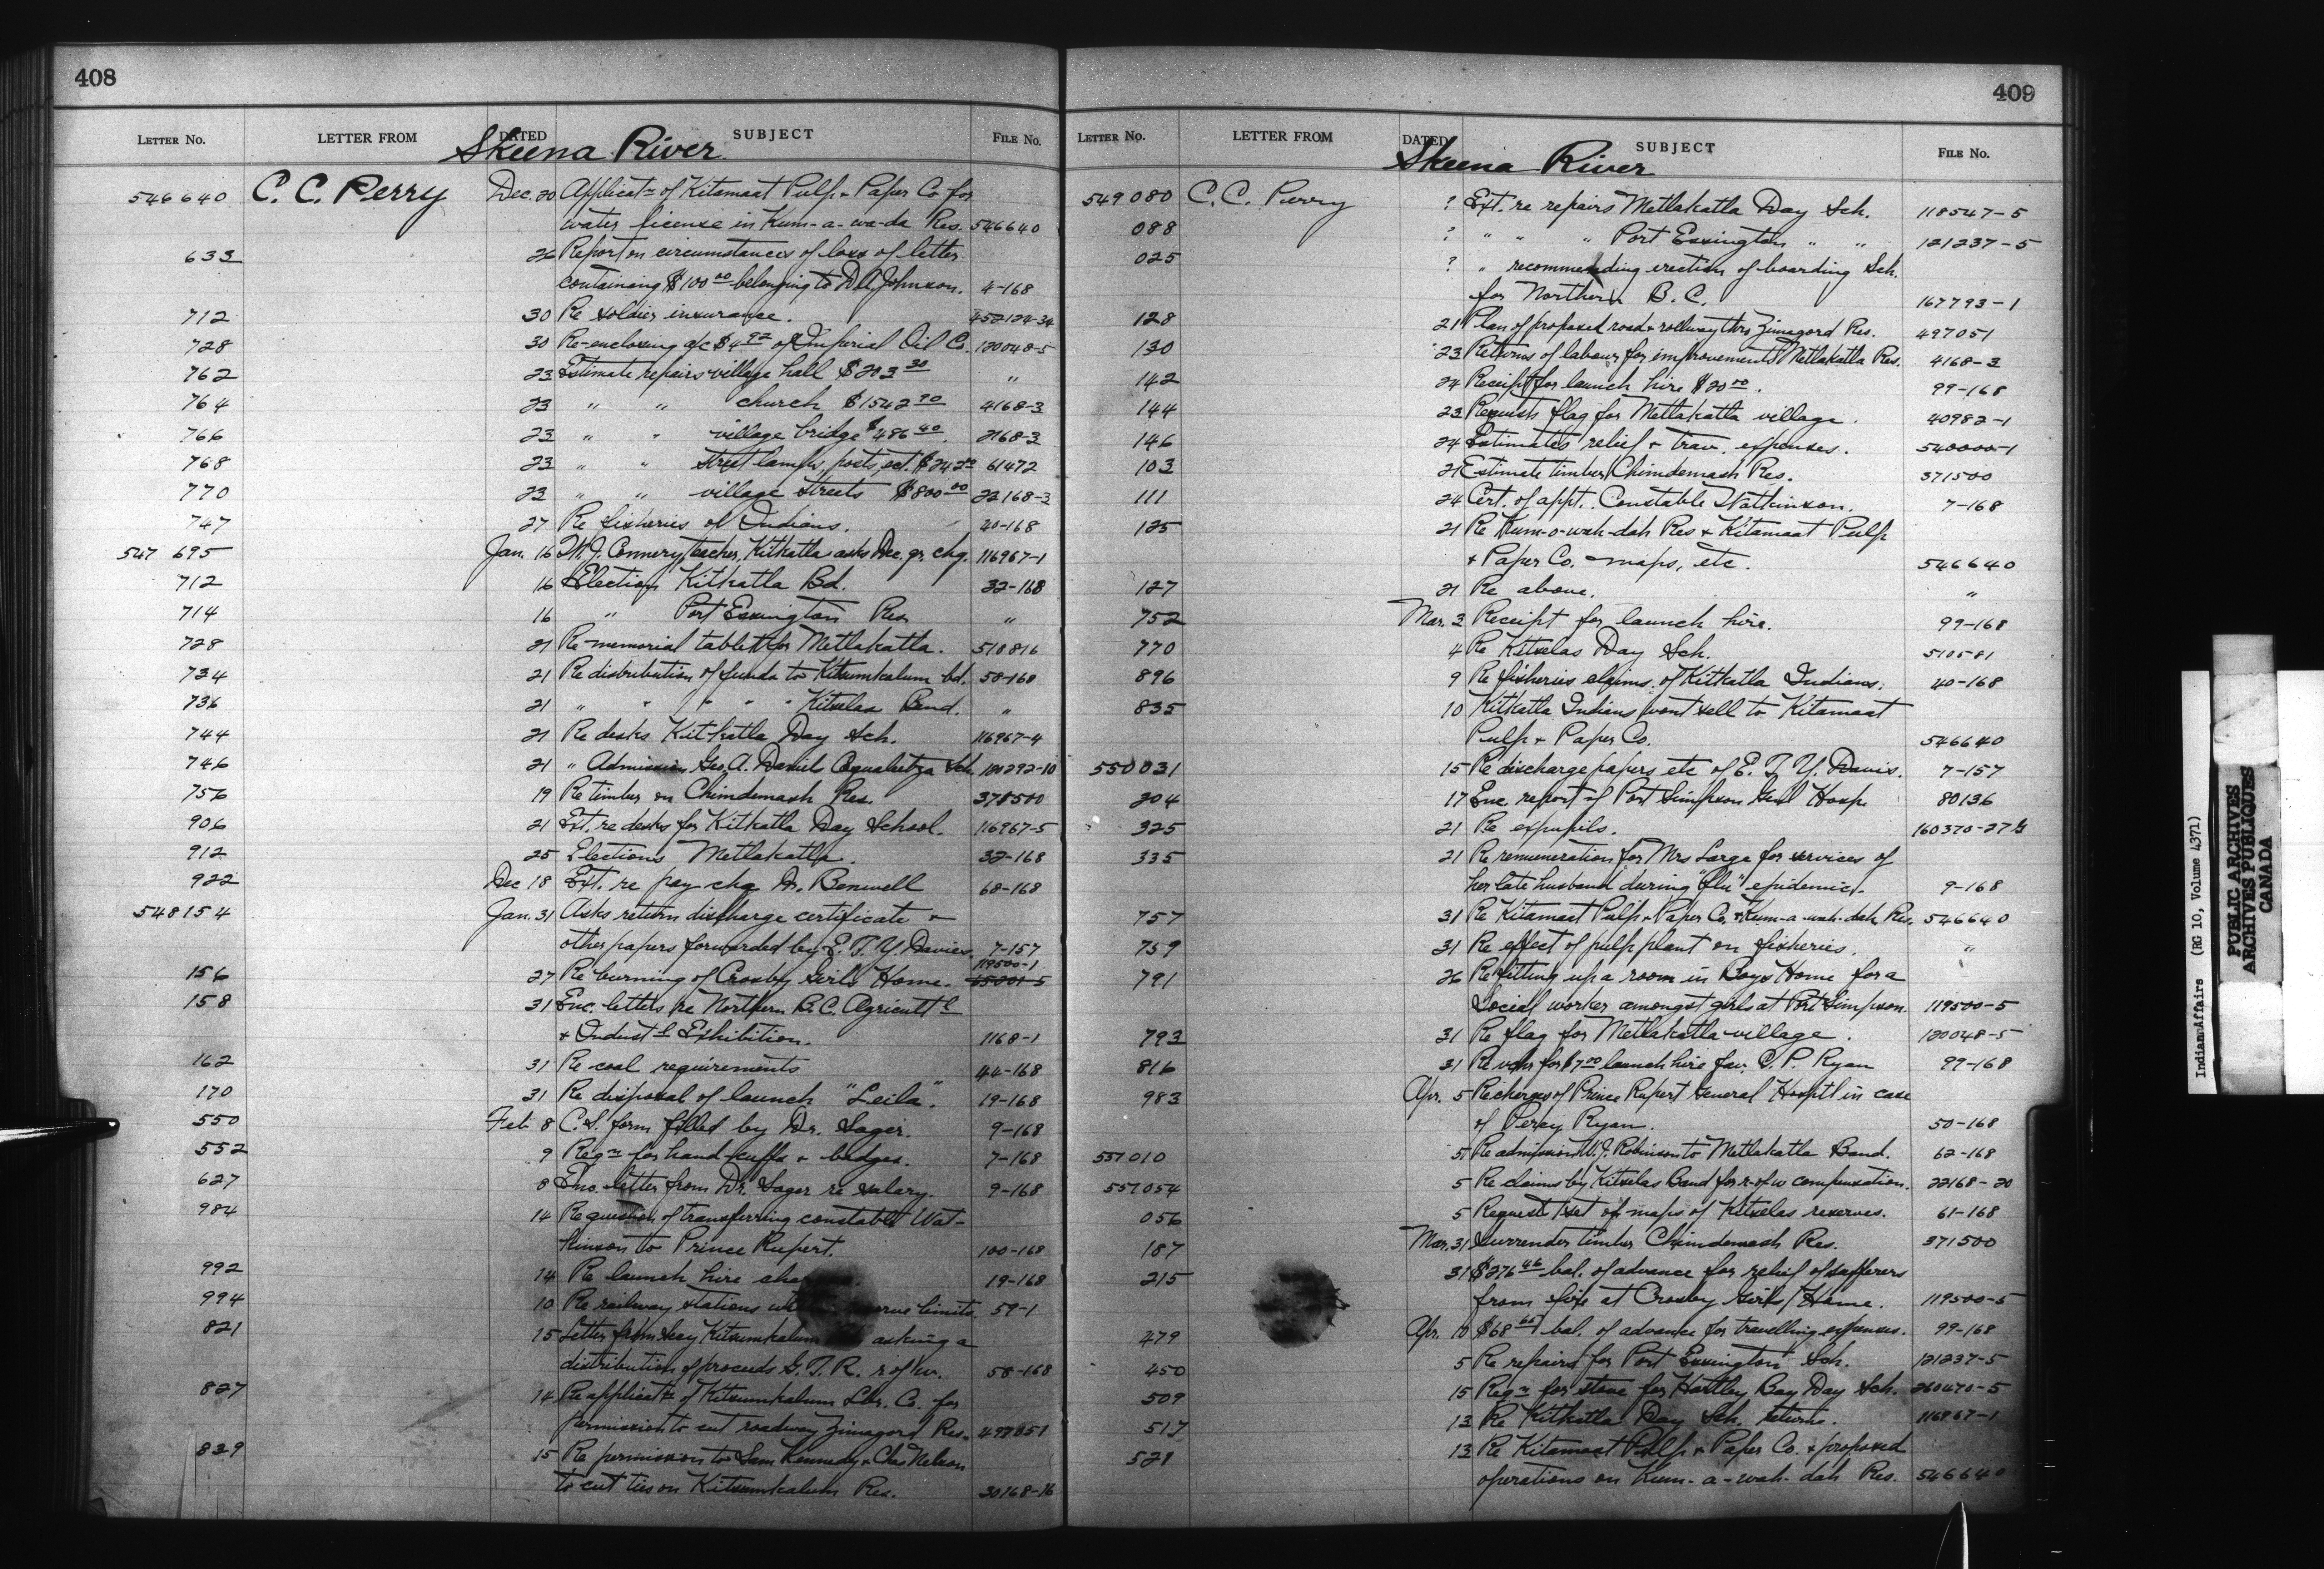 408
LETTER NO. LETTER FROM DATED SUBJECT FILE NO.
Skeena River
546640 C. C. Perry Dec. 20 Applicatn of Kitamaat Pulp & Paper Co for
water license in Kum-a-wa-da Res. 546640
633 26 Report on circumstances of loss of letter
containing $100.00 belonging to D.A. Johnson. 4-168
712 30 Re soldier insurance. 452124-34
728 30 Re-enclosing a/c $4.92 of Imperial Oil Co. 120048-5
762 23 Estimate repairs village hall $203.30 "
764 23 " " church $1542.90 4168-3
766 23 " " village bridge $486.40. 2168-3
768 23 " " street lamps, posts, ect. 61472
770 23 " " village streets $800.00 22168-3
747 27 Re fisheries of Indians. 40-168
547 695 Jan. 16 W.J. Connery, teacher, Kitkatla asks Dec. qr. chq. 116967-1
712 16 Election Kitkatla Bd. 32-168
714 16 " Port Essington Res. "
728 21 Re memorial tablet for Metlakatla. 518816
734 21 Re distribution of funds to Kitsumkalum bd. 58-168
736 21 " " " " " Kitselas Band. "
744 21 Re desks Kitkatla Day Sch. 116967-4
746 21 " Admission Geo. A. Daniels Coqualeetza Sch.
756 19 Re timber on Chimdemash Res. 378500
906 21 Ext. re desks for Kitkatla Day School. 116967-5
912 25 Elections Metlakatla. 32-168
922 Dec 18 Ext. re pay chq Dr. Benwell 68-168
548154 Jan. 31 Asks return discharge certificate &
other papers forwarded by E. T. Y. Davies. 7-157
119500-1
156 27 Re burning of Crosby Girls Home.
158 31 Enc. letters re Northern B.C. Agricultl
& Industl Exhibition. 1168-1
162 31 Re coal requirements 44-168
170 31 Re disposal of launch "Leila". 19-168
550 Feb 8 C.S. form filled by Dr. Sager. 9-168
552 9 Reqn for hand-cuffs & badges. 7-168
627 8 Enc. letter from Dr. Sager re salary. 9-168
984 14 Re question of transferring constable Wat-
kinson to Prince Rupert. 100-168
992 14 Re launch hire 19-168
994 10 Re railway stations limits. 59-1
821 15 Letter from Kitsumkalum asking a
distribution of proceeds G.T.R. r of w. 58-168
827 14 Re applicatn of Kitsumkalum Lbr. Co. for
permission to cut roadway Zimagord Res. 497051
839 15 Re permission to Sam Kennedy & Chas Nelson
to cut ties on Kitsumkalum Res. 30168-16
409
LETTER NO. LETTER FROM DATED SUBJECT FILE NO.
Skeena River
549080 C. C. Perry ? Ext. re repairs Metlakatla Day Sch. 118547-5
088 ? " " " Port Essington " " 121237-5
025 ? " recommending erection of boarding Sch.
for Northern B.C. 167793-1
128 21 Plan of proposed road & rollway thro Zimagord Res. 497051
130 23 Returns of labour for improvements Metlakatla Res. 4168-3
142 24 Receipt for launch hire $20.00. 99-168
144 23 Requests flag for Metlakatla village. 40982-1
146 24 Estimates relief & trav. expenses. 540000-1
103 21 Estimate timber Chimdemash Res. 371500
111 24 Cert. of appt. Constable Watkinson. 7-168
125 21 Re Kum-o-wah-dah Res & Kitamaat Pulp
& Paper Co. maps, etc. 546640
127 21 Re above. "
752 Mar. 3 Receipt for launch hire. 99-168
770 4 Re Kitselas Day Sch. 510581
896 9 Re fisheries claims of Kitkatla Indians. 40-168
835 10 Kitkatla Indians wont sell to Kitamaat
Pulp & Paper Co. 546640
550031 15 Re discharge papers etc of E. T. Y. Davis. 7-157
204 17 Enc. report of Port Simpson Genl Hosp. 80136
325 21 Re expupils.
335 21 Re remuneration for Mrs Large for services of
her late husband during "flu" epidemic. 9-168
757 31 Re Kitamaat Pulp & Paper Co. & Kum-a-wah-dah Res. 546640
759 31 Re effect of pulp plant on fisheries. "
791 26 Re fitting up a room in Boys Home for a
Social worker amongst girls at Port Simpson. 119500-5
793 31 Re flag for Metlakatla village. 120048-5
816 31 Re vchr for $7.00 launch hire fav. C. P. Ryan 99-168
983 Apr. 5 Re charges of Prince Rupert General Hospitl in case
of Percy Ryan. 50-168
551010 5 Re admission W.J. Robinson to Metlakatla Band. 62-168
551054 5 Re claims by Kitselas Band for r-of-w compensation. 22168-20
056 5 Request set of maps of Kitselas reserves. 61-168
187 Mar. 31 Surrender timber Chimdemash Res. 371500
215 31 $276.46 bal. of advance for relief of sufferers
from fire at Crosby Girls Home. 119500-5
479 Apr. 10 $68.65 bal. of advance for travelling expenses. 99-168
450 5 Re repairs for Port Essington Sch. 121237-5
509 15 Reqn for stove for Hartley Bay Day Sch. 260470-5
517 13 Re Kitkatla Day Sch. returns. 116967-1
521 13 Re Kitamaat Pulp & Paper Co. & proposed
operations on Kum-a-wah-dah Res. 546640
Indian Affairs (RG 10, Volume 4371)
PUBLIC ARCHIVES
ARCHIVES PUBLIQUES
CANADA